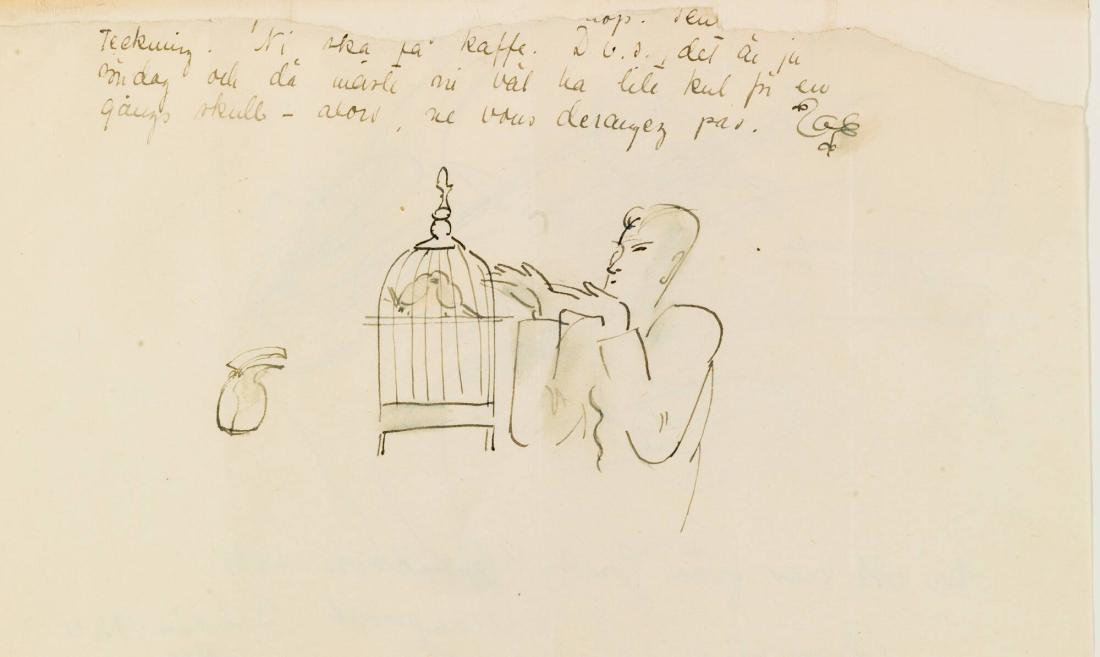 nop. sen
Teckning. "Ni ska få kaffe. D.v.s., det är ju
söndag och då måste ni väl ha lite kul för en
gångs skull – alors, ne vous derangez pas.